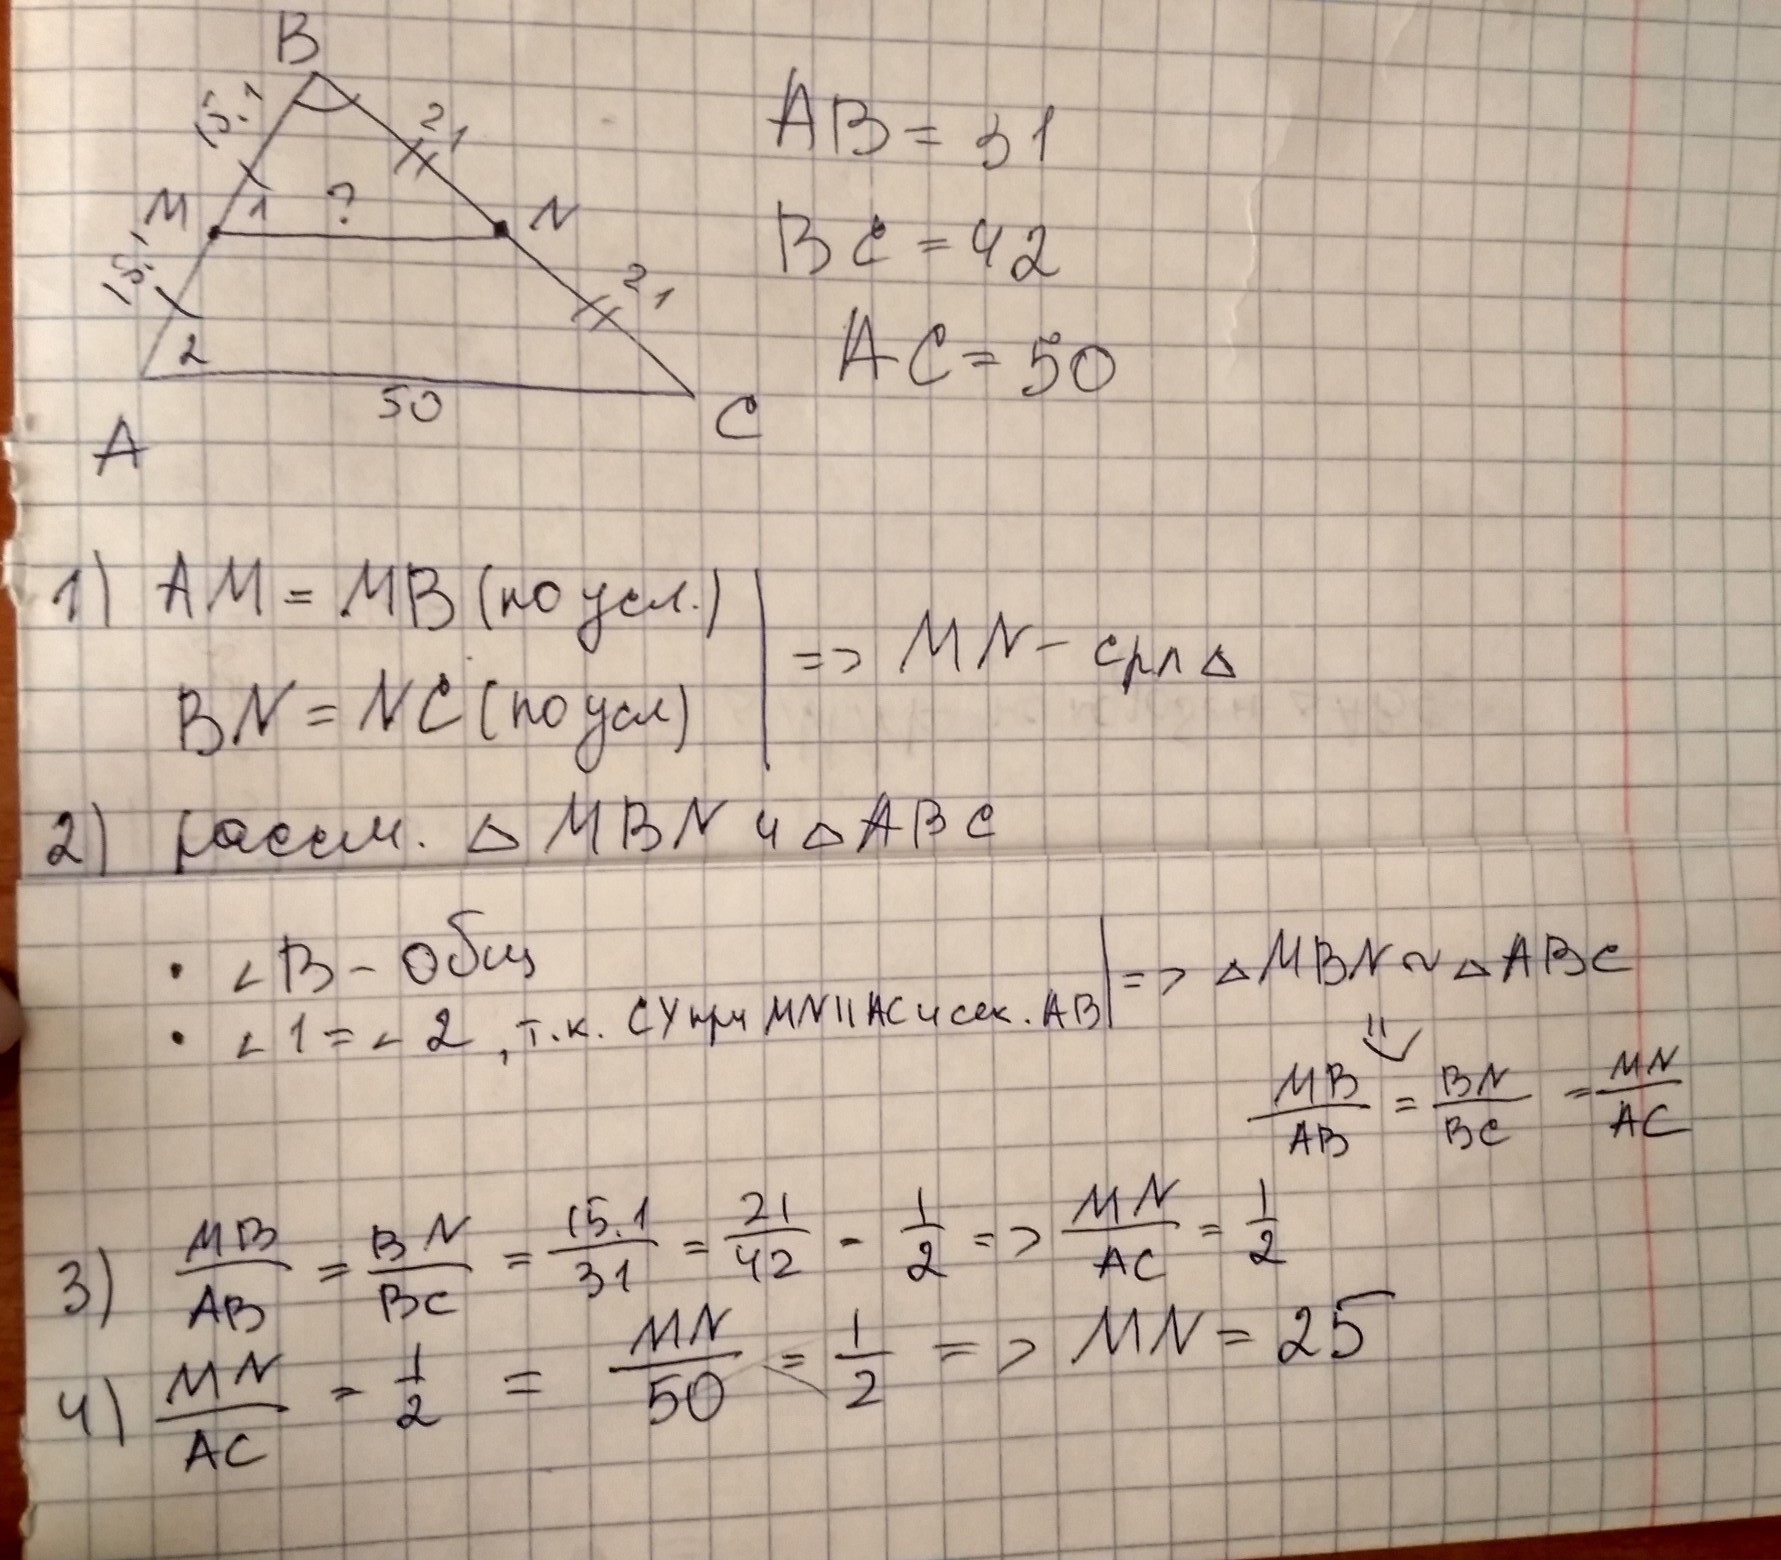 B
15.1
21
AB = 31
M
1
?
N
BC = 42
15.1
21
2
AC = 50
50
A
C
1) AM = MB (по усл.)
BN = NC (по усл)
=> MN - срл △
2) рассм. △ MBN и △ ABC
• ∠B - Общ
• ∠1 = ∠2, т.к. СУ при MN || AC и сек. AB
=> △MBN ~ △ABC
MB/AB = BN/BC = MN/AC
3) MB/AB = BN/BC = 15.1/31 = 21/42 = 1/2 => MN/AC = 1/2
4) MN/AC = 1/2 = MN/50 = 1/2 => MN = 25